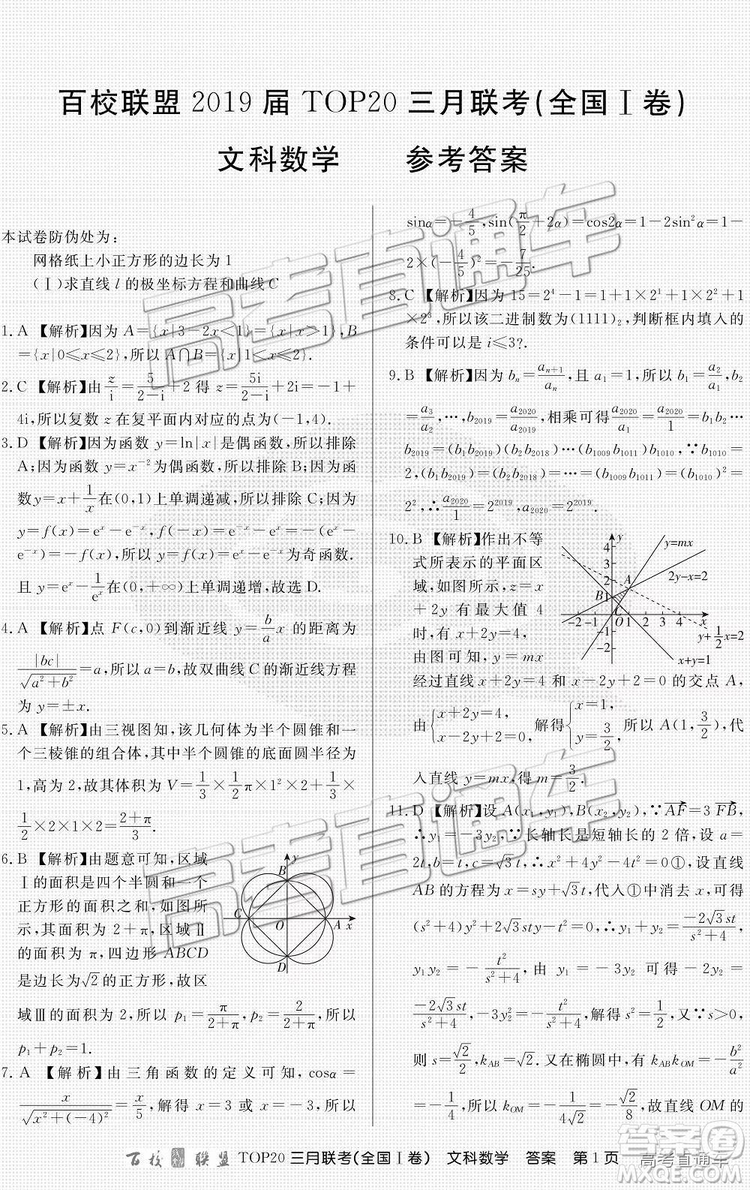 百校联盟 2019 届 TOP20 三月联考(全国Ⅰ卷)
文科数学 参考答案
本试卷防伪处为：
网格纸上小正方形的边长为 1
(Ⅰ)求直线 l 的极坐标方程和曲线 C
1. A 【解析】因为 A={x|3-2x<1}={x|x>1}, B
={x|0≤x≤2}, 所以 A∩B={x|1<x≤2}.
2. C 【解析】由 z/i = 5/(2-i) +2 得 z= 5i/(2-i) +2i=-1+
4i, 所以复数 z 在复平面内对应的点为(-1,4).
3. D 【解析】因为函数 y=ln|x|是偶函数, 所以排除
A; 因为函数 y=x⁻² 为偶函数, 所以排除 B; 因为函
数 y=x+1/x 在(0,1)上单调递减, 所以排除 C; 因为
y=f(x)=eˣ-e⁻ˣ, f(-x)=e⁻ˣ-eˣ=
-(eˣ-e⁻ˣ)=-f(x), 所以函数 y=eˣ-e⁻ˣ 是奇函数.
且 y=eˣ-1/eˣ 在(0,+∞)上单调递增, 故选 D.
4. A 【解析】点 F(c,0)到渐近线 y=b/a x 的距离为
|bc|/√(a²+b²)=a, 所以 a=b, 故双曲线 C 的渐近线方程
为 y=±x.
5. A 【解析】由三视图知, 该几何体为半个圆锥和一
个三棱锥的组合体, 其中半个圆锥的底面圆半径为
1, 高为 2, 故其体积为 V=1/3×1/2×π×2+1/3×
1/2×2×1×2=(2+π)/3.
6. B 【解析】由题意可知, 区域
Ⅰ的面积是四个半圆和一个
正方形的面积之和减去一个大圆的面积
示, 其面积为 2+π, 区域Ⅱ
的面积为 π, 四边形 ABCD
是边长为√2的正方形, 所以区
域Ⅲ的面积为 2, 所以 p₁=π/(2+π), p₂=2/(2+π), 所以
p₁+p₂=1.
B
y
C
O
A
x
D
7. A 【解析】由三角函数的定义可知, cosα=
x/√(x²+(-4)²)=x/5, 解得 x=±3, 又 x>0, 所以 x=3, 所以
sinα=-4/5, sin(π/2+2α)=cos2α=1-2sin²α=1-
2×(-4/5)²=-7/25.
8. C 【解析】因为 15=2⁴-1=1+1×2+1×2²+1
×2³, 所以该二进制数为(1111)₂, 判断框内填入的
条件可以是 i≤3?.
9. B 【解析】因为 bₙ=aₙ₊₁/aₙ, 且 a₁=1, 所以 b₁=a₂/a₁, b₂
=a₃/a₂, …, b₂₀₁₉=a₂₀₂₀/a₂₀₁₉, 相乘可得=b₁b₂…
b₂₀₁₉=(b₁b₂₀₁₉)(b₂b₂₀₁₈)…(b₁₀₀₉b₁₀₁₁)b₁₀₁₀, ∵b₁₀₁₀=
2, ∴b₁b₂₀₁₉=b₂b₂₀₁₈=…=b₁₀₀₉b₁₀₁₁=(b₁₀₁₀)²=
2², ∴a₂₀₂₀/1=2²⁰¹⁹, a₂₀₂₀=2²⁰¹⁹.
10. B 【解析】作出不等
式所表示的平面区
域, 如图所示, x
+2y 有最大值 4
时, x+2y=4.
由图可知, y=mx
经过直线 x+2y=4 和 x-2y+2=0 的交点 A,
y
4
3
2
1
-1
-2
-2 -1 O 1 2 3 4 x
A
B
C
y=mx
2y-x=2
y+1/2x=2
x+y=1
由{x+2y=4, x-2y=-2, 解得{x=1, y=3/2, 所以 A(1,3/2), 代
入直线 y=mx, 解得 m=3/2.
11. D 【解析】设 A(x₁,y₁), B(x₂,y₂), ∵AF=3FB,
∴y₁=-3y₂, ∵长轴长是短轴长的 2 倍, 设 a=
2t, b=t, 得 c=√3t, ∴x²+4y²-4t²=0①, 设直线
AB 的方程为 x=sy+√3t, 代入①得,
(s²+4)y²+2√3sty-t²=0, ∴y₁+y₂=-2√3st/(s²+4),
y₁y₂=-t²/(s²+4), 由 y₁=-3y₂ 可得 -2y₂=
-2√3st/(s²+4), -3y₂²=-t²/(s²+4), 解得 s²=1/2, 又∵s>0,
则 s=√2/2, kAB=√2. 又∵在椭圆中, kOM·kAB=-b²/a²
=-1/4, 所以解得 kOM=-1/(4√2)=-√2/8, 故直线 OM 的
百校联盟 TOP20 三月联考(全国Ⅰ卷) 文科数学 答案 第 1 页
高考直通车
高考直通车
高考直通车
答案圈